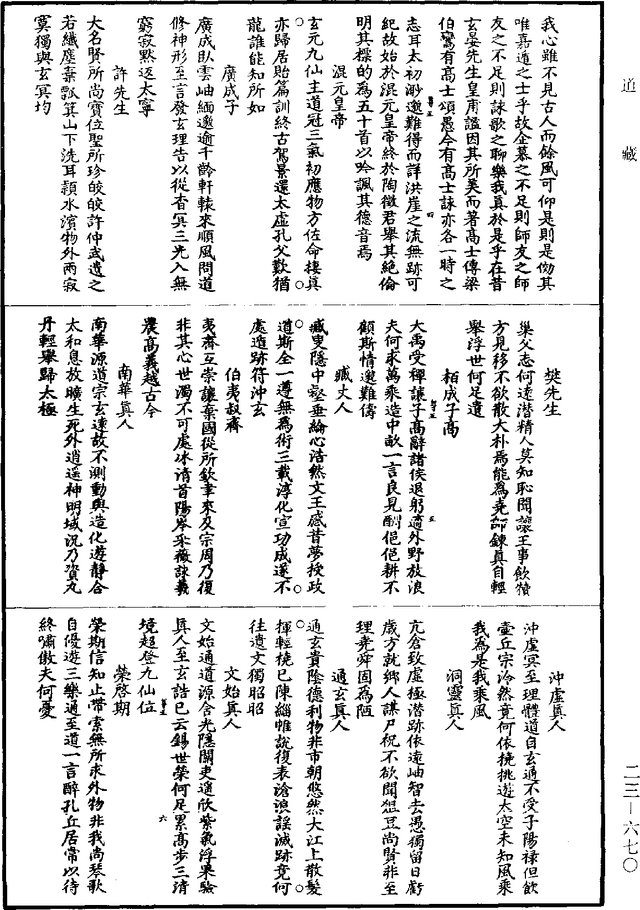 道藏
我心雖不見古人而餘風可仰是則是攸其
唯嘉遁之士乎故企慕之不足則師友之師
友之不足則詠歌之聊樂我真於是乎在昔
玄晏先生皇甫謐因其所美而著高士傳梁
伯鸞有高士頌愚今有高士詠亦各一時之
志耳太初渺邈難得而詳洪崖之流無跡可
紀故始於混元皇帝終於陶徵君舉其絕倫
明其標的為五十首以吟諷其德音焉
混元皇帝
玄元九仙主道冠三氣初應物方佐命棲真
亦歸居貽篇訓終古駕景還太虛孔父歎猶
龍誰能知所如
廣成子
廣成臥雲岫緬邈逾千齡軒轅來順風問道
修神形至言發玄理告以從杳冥三光入無
窮寂默返太寧
許先生
大名賢所尚寶位聖所珍皎皎許仲武遺之
若纖塵棄瓢箕山下洗耳潁水濱物外兩寂
寞獨與玄冥均
樊先生
巢父志何遠潛精人莫知恥聞讓王事飲犢
方見移不欲散大朴焉能為堯師鍊真自輕
舉浮世何足遺
栢成子高
大禹受禪讓子高辭諸侯退躬適外野放浪
夫何求萬乘造中畝一言良見酬俋俋耕不
顧斯情邈難儔
臧丈人
臧叟隱中壑垂綸心浩然文王感昔夢授政
道斯全一遵無為術三載淳化宣功成遂不
處遁跡符沖玄
伯夷叔齊
夷齊互崇讓棄國從所欽聿來及宗周乃復
非其心世濁不可處冰清首陽岑采薇詠羲
農高義越古今
南華真人
南華源道宗玄遠故不測動與造化遊靜合
太和息放曠生死外逍遙神明域況乃資丸
丹輕舉歸太極
沖虛真人
沖虛冥至理體道自玄通不受子陽祿但飲
壺丘宗泠然竟何依撓挑遊太空未知風乘
我為是我乘風
洞靈真人
亢倉致虛極潛跡依遠岫智去愚獨留日虧
歲方就鄉人謀尸祝不欲聞俎豆尚賢非至
理堯舜固為陋
通玄真人
通玄貴陰德利物非市朝悠然大江上散髮
揮輕橈已陳緇帷說復表滄浪謠滅跡竟何
往遺文獨昭昭
文始真人
文始通道源含光隱關吏遙欣紫氣浮果驗
真人至玄誥已云錫世榮何足累高步三清
境超登九仙位
榮啓期
榮期信知止帶索無所求外物非我尚琴歌
自優遊三樂通至道一言醉孔丘居常以待
終嘯傲夫何憂
二三—六七〇